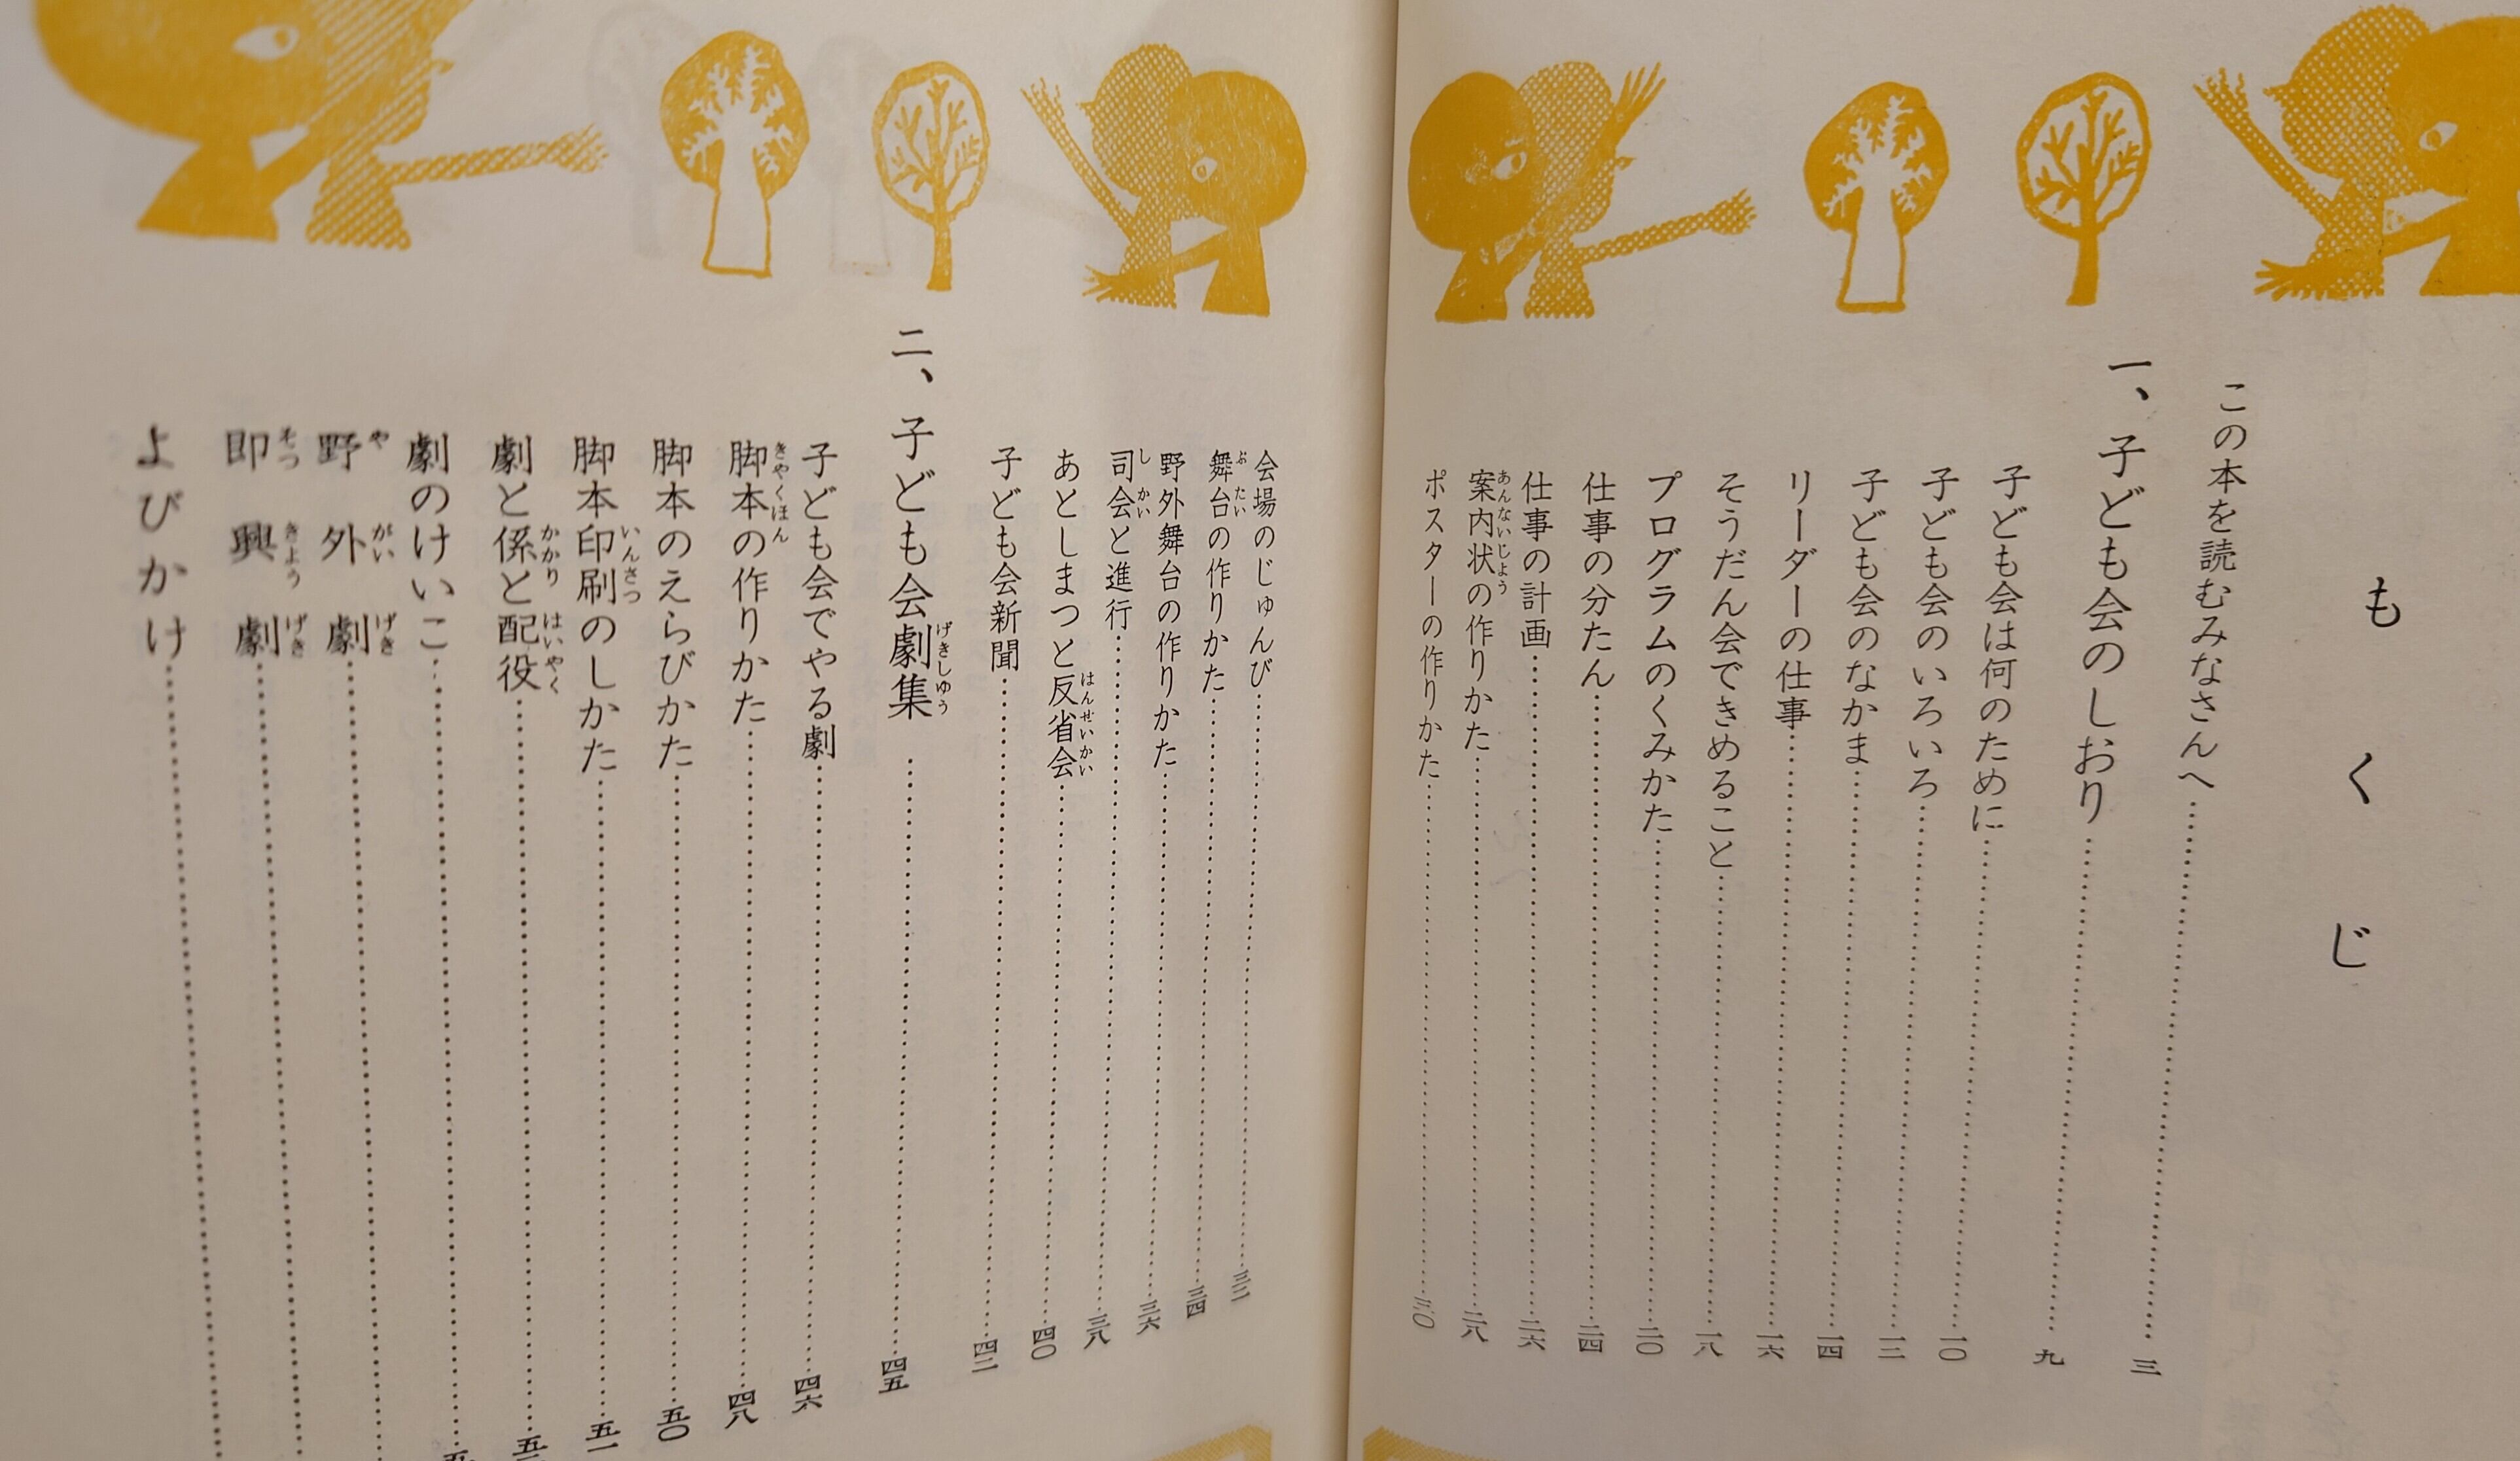 もくじ
この本を読むみなさんへ……三
一、子ども会のしおり……九
子ども会は何のために……一〇
子ども会のいろいろ……一二
子ども会のなかま……一四
リーダーの仕事……一六
そうだん会できめること……一八
プログラムのくみかた……二〇
仕事の分たん……二四
仕事の計画……二六
案内状の作りかた……二八
ポスターの作りかた……三〇
会場のじゅんび……三二
舞台の作りかた……三四
野外舞台の作りかた……三六
司会と進行……三八
あとしまつと反省会……四〇
子ども会新聞……四二
二、子ども会劇集……四五
子ども会でやる劇……四六
脚本の作りかた……四八
脚本のえらびかた……五〇
脚本印刷のしかた……五一
劇と係と配役……
劇のけいこ……
野外劇……
即興劇……
よびかけ……